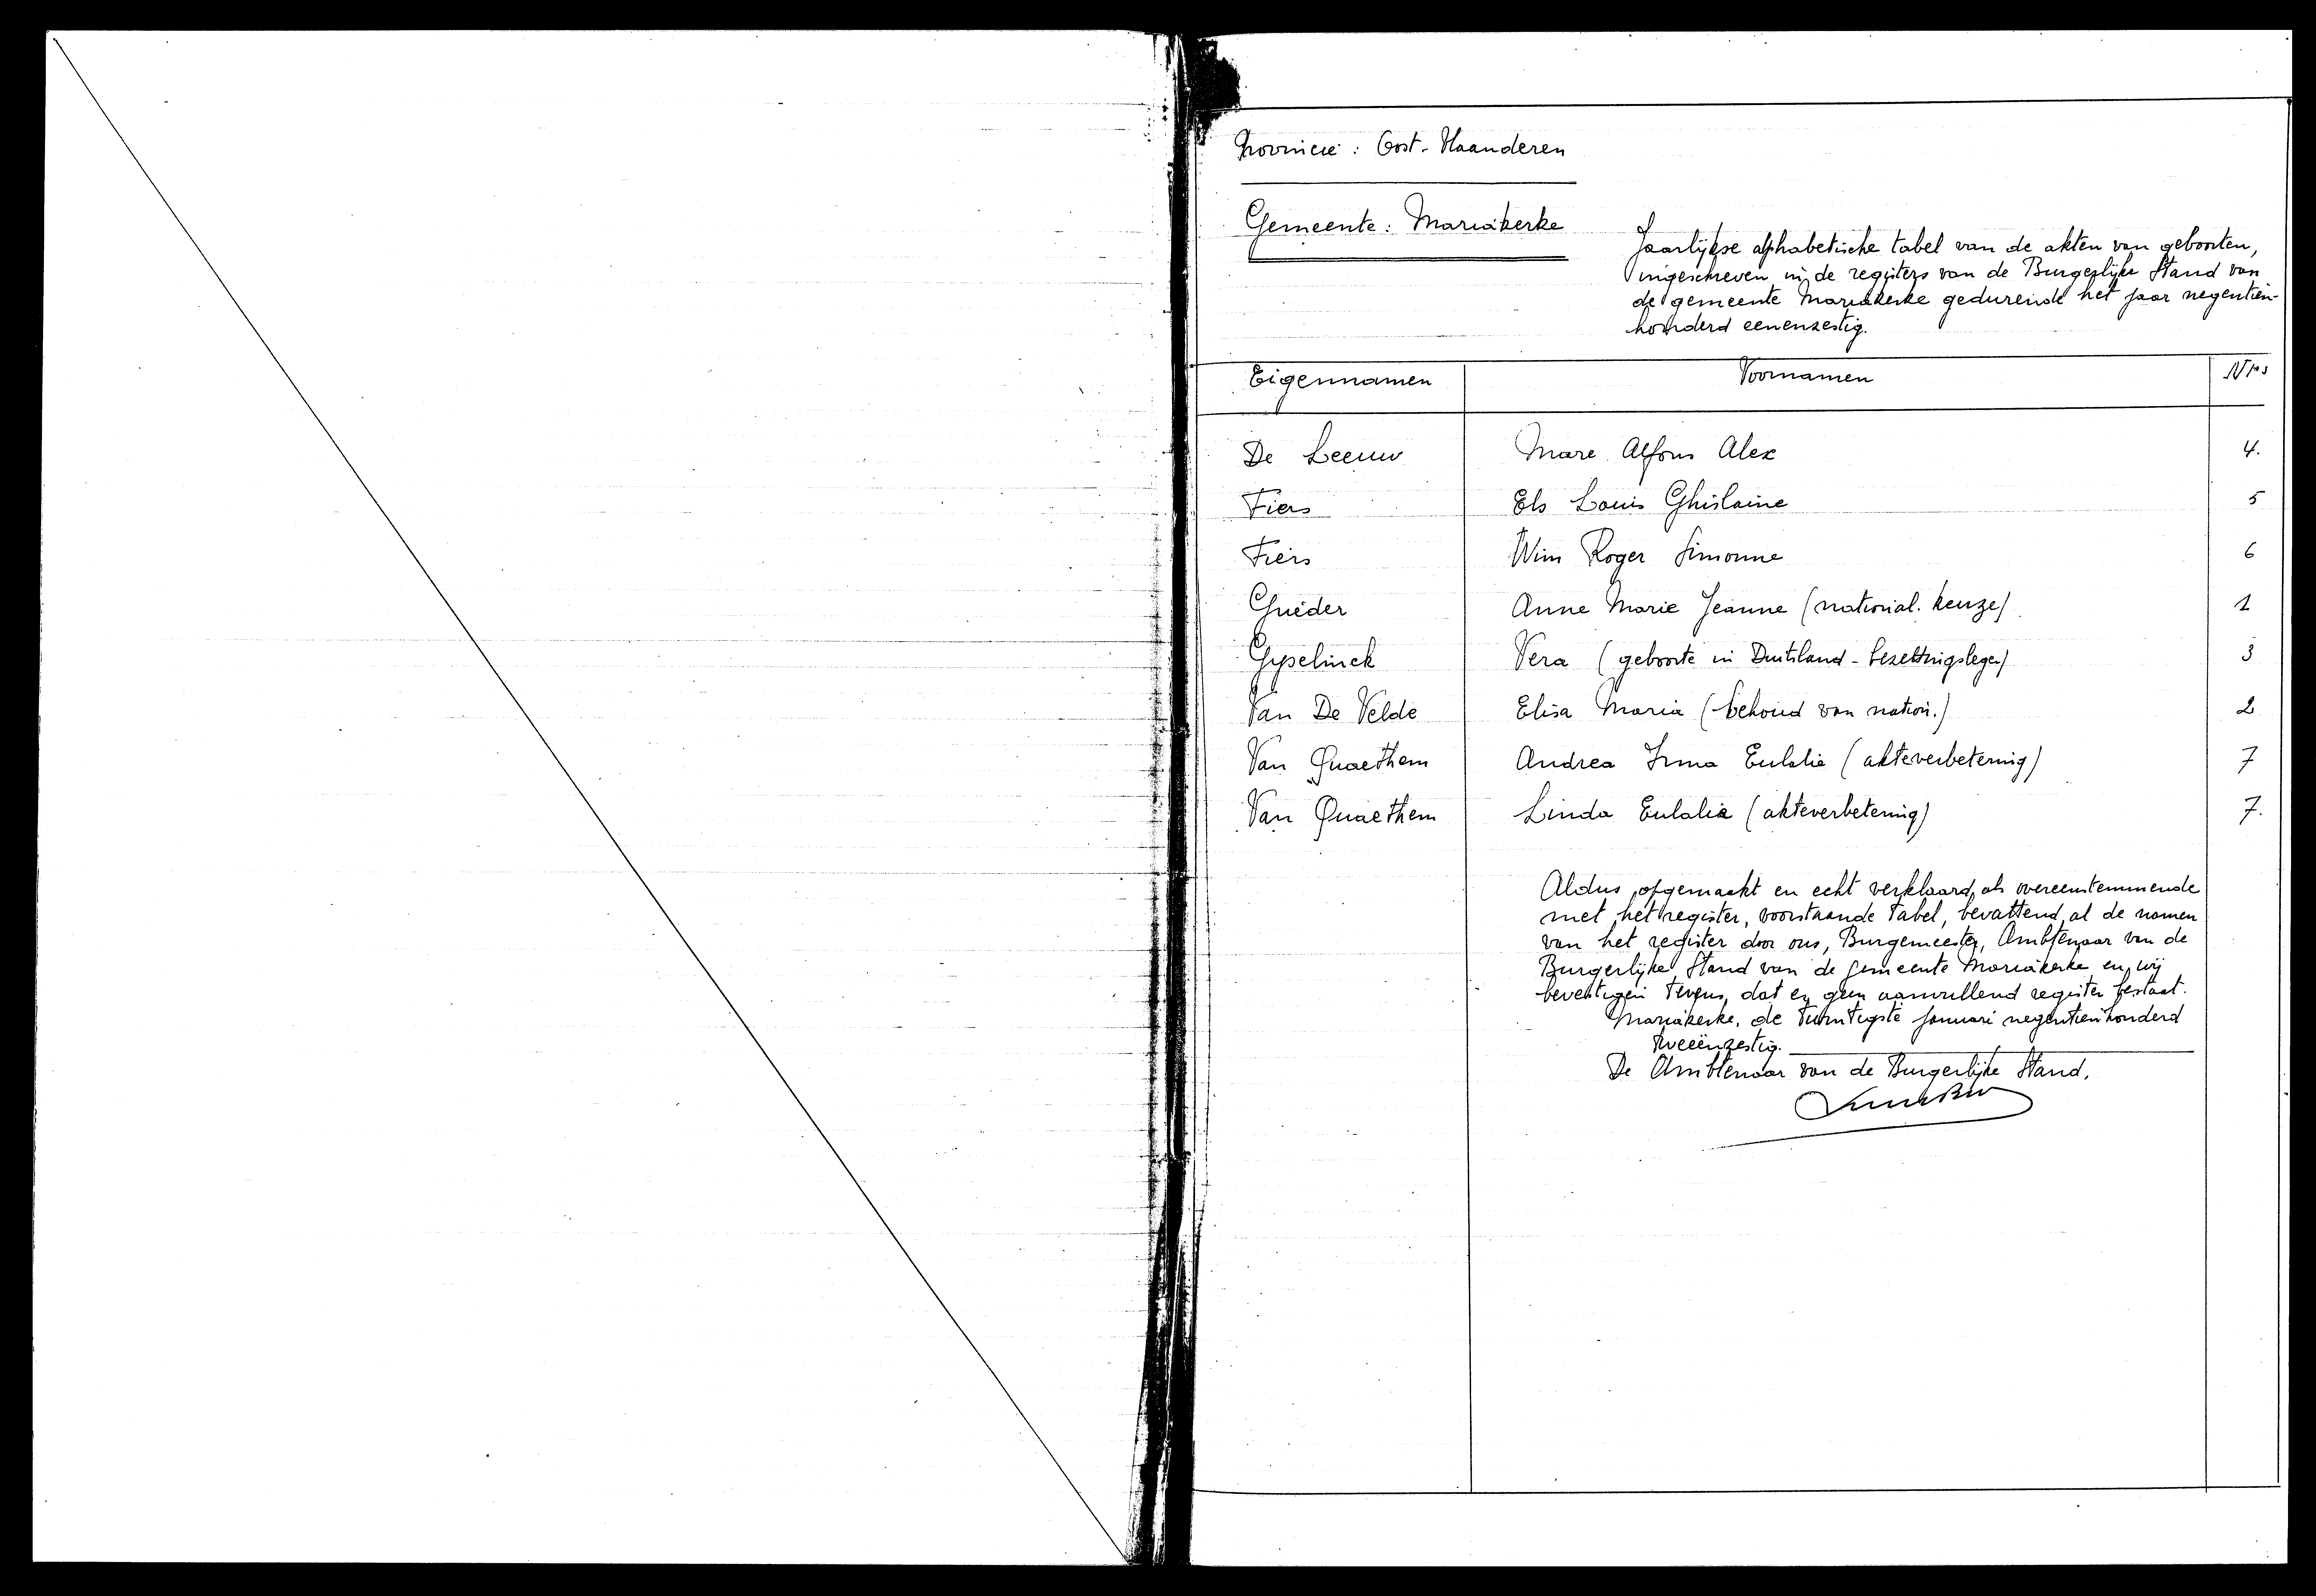 Provincie : Oost-Vlaanderen
Gemeente : Mariakerke
Jaarlijkse alphabetische tabel van de akten van geboorten,
ingeschreven in de registers van de Burgerlijke Stand van
de gemeente Mariakerke gedurende het jaar negentien-
honderd eenenzestig.
Eigennamen Voornamen Nrs
De Leeuw Marc Alfons Alex 4.
Fiers Els Louis Ghislaine 5
Fiers Wim Roger Simonne 6
Gueder Anne Marie Jeanne (national. keuze) 1
Gyselinck Vera (geboorte in Duitsland - bezettingsleger) 3
Van De Velde Elisa Maria (behoud van nation.) 2
Van Quaethem Andrea Irma Eulalie (akteverbetering) 7
Van Quaethem Linda Eulalia (akteverbetering) 7.
Aldus opgemaakt en echt verklaard, als overeenstemmende
met het register, voorstaande tabel, bevattend al de namen
van het register door ons, Burgemeester, Ambtenaar van de
Burgerlijke Stand van de gemeente Mariakerke en wij
bevestigen tevens, dat er geen aanvullend register bestaat.
Mariakerke, de twintigste januari negentienhonderd
tweeënzestig.
De Ambtenaar van de Burgerlijke Stand,